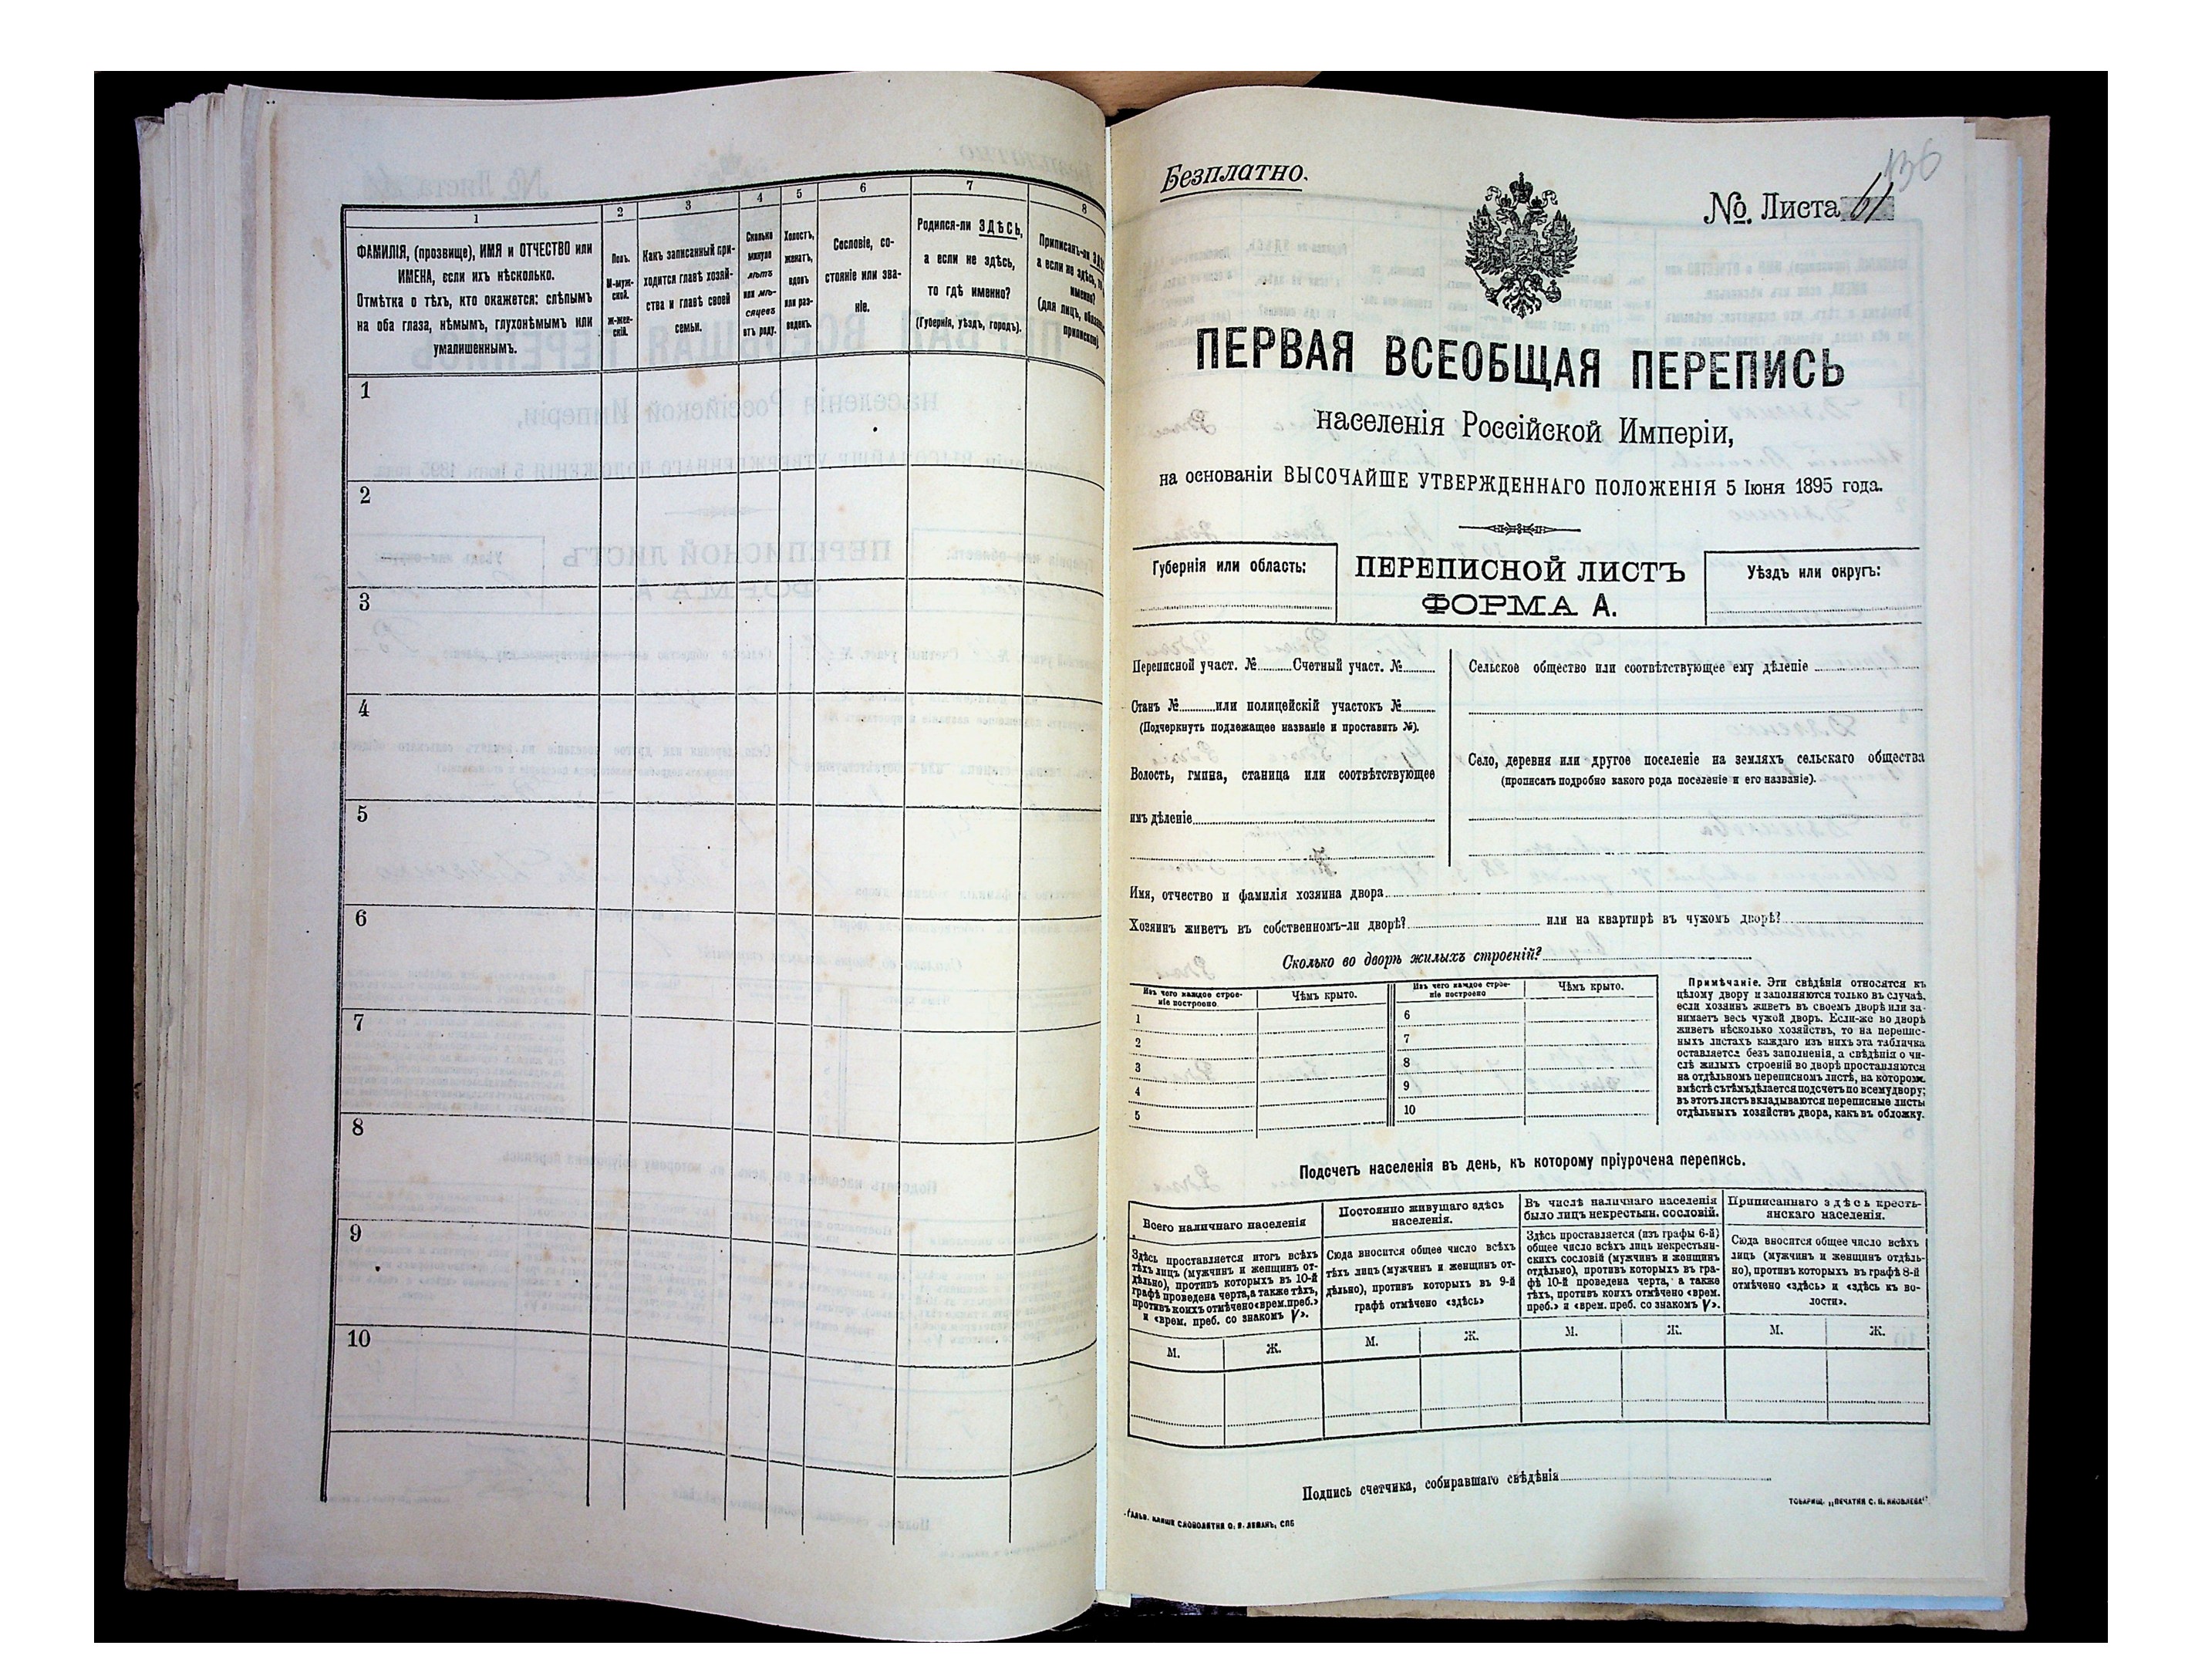 1
2
3
4
5
6
7
8
ФАМИЛІЯ, (прозвище), ИМЯ и ОТЧЕСТВО или
ИМЕНА, если ихъ нѣсколько.
Отмѣтка о тѣхъ, кто окажется: слѣпымъ
на оба глаза, нѣмымъ, глухонѣмымъ или
умалишеннымъ.
Полъ.
М-муж-
ской.
ж-жен-
скій.
Какъ записанный при-
ходится главѣ хозяй-
ства и главѣ своей
семьи.
Сколько
минуло
лѣтъ
или мѣ-
сяцевъ
отъ роду.
Холостъ,
женатъ,
вдовъ
или раз-
веденъ.
Сословіе, со-
стояніе или зва-
ніе.
Родился-ли ЗДѢСЬ,
а если не здѣсь,
то гдѣ именно?
(Губернія, уѣздъ, городъ).
Приписанъ-ли
а если не здѣсь,
именно?
(для лицъ,
1
2
3
4
5
6
7
8
9
10
Безплатно.
№. Листа 61
136
ПЕРВАЯ ВСЕОБЩАЯ ПЕРЕПИСЬ
населенія Россійской Имперіи,
на основаніи ВЫСОЧАЙШЕ УТВЕРЖДЕННАГО ПОЛОЖЕНІЯ 5 Іюня 1895 года.
Губернія или область:
ПЕРЕПИСНОЙ ЛИСТЪ
ФОРМА А.
Уѣздъ или округъ:
Переписной участ. № Счетный участ. №
Станъ № или полицейскій участокъ №
(Подчеркнуть подлежащее названіе и проставить №).
Волость, гмина, станица или соотвѣтствующее
имъ дѣленіе
Сельское общество или соотвѣтствующее ему дѣленіе
Село, деревня или другое поселеніе на земляхъ сельскаго общества
(прописать подробно какого рода поселеніе и его названіе).
Имя, отчество и фамилія хозяина двора
Хозяинъ живетъ въ собственномъ-ли дворѣ? или на квартирѣ въ чужомъ дворѣ?
Сколько во дворѣ жилыхъ строеній?
Изъ чего каждое строе-
ніе построено
Чѣмъ крыто.
1
2
3
4
5
Изъ чего каждое строе-
ніе построено
Чѣмъ крыто.
6
7
8
9
10
Примѣчаніе. Эти свѣдѣнія относятся къ
цѣлому двору и заполняются только въ случаѣ,
если хозяинъ живетъ въ своемъ дворѣ или за-
нимаетъ весь чужой дворъ. Если-же во дворѣ
живетъ нѣсколько хозяйствъ, то на перепис-
ныхъ листахъ каждаго изъ нихъ эта табличка
оставляется безъ заполненія, а свѣдѣнія о чи-
слѣ жилыхъ строеній во дворѣ проставляются
на отдѣльномъ переписномъ листѣ, на которомъ
вмѣстѣ съ тѣмъ дѣлается подсчетъ по всему двору;
въ этотъ листъ вкладываются переписные листы
отдѣльныхъ хозяйствъ двора, какъ въ обложку.
Подсчетъ населенія въ день, къ которому пріурочена перепись.
Всего наличнаго населенія
Здѣсь проставляется итогъ всѣхъ
тѣхъ лицъ (мужчинъ и женщинъ от-
дѣльно), противъ которыхъ въ 10-й
графѣ проведена черта, а также тѣхъ,
противъ коихъ отмѣчено «врем. преб.»
и «врем. преб. со знакомъ V».
М. Ж.
Постоянно живущаго здѣсь
населенія.
Сюда вносится общее число всѣхъ
тѣхъ лицъ (мужчинъ и женщинъ от-
дѣльно), противъ которыхъ въ 9-й
графѣ отмѣчено «здѣсь»
М. Ж.
Въ числѣ наличнаго населенія
было лицъ некрестьян. сословій.
Здѣсь проставляется (изъ графы 6-й)
общее число всѣхъ лицъ некрестьян-
скихъ сословій (мужчинъ и женщинъ
отдѣльно), противъ которыхъ въ гра-
фѣ 10-й проведена черта, а также
тѣхъ, противъ коихъ отмѣчено «врем.
преб.» и «врем. преб. со знакомъ V».
М. Ж.
Приписаннаго здѣсь кресть-
янскаго населенія.
Сюда вносится общее число всѣхъ
лицъ (мужчинъ и женщинъ отдѣль-
но), противъ которыхъ въ графѣ 8-й
отмѣчено «здѣсь» и «здѣсь къ во-
лости».
М. Ж.
Подпись счетчика, собиравшаго свѣдѣнія
ГАЛЬВ. КЛИШЕ СЛОВОЛИТНИ О. И. ЛЕМАНЪ, СПБ
ТОВАРИЩ. „ПЕЧАТНЯ С. П. ЯКОВЛЕВА"